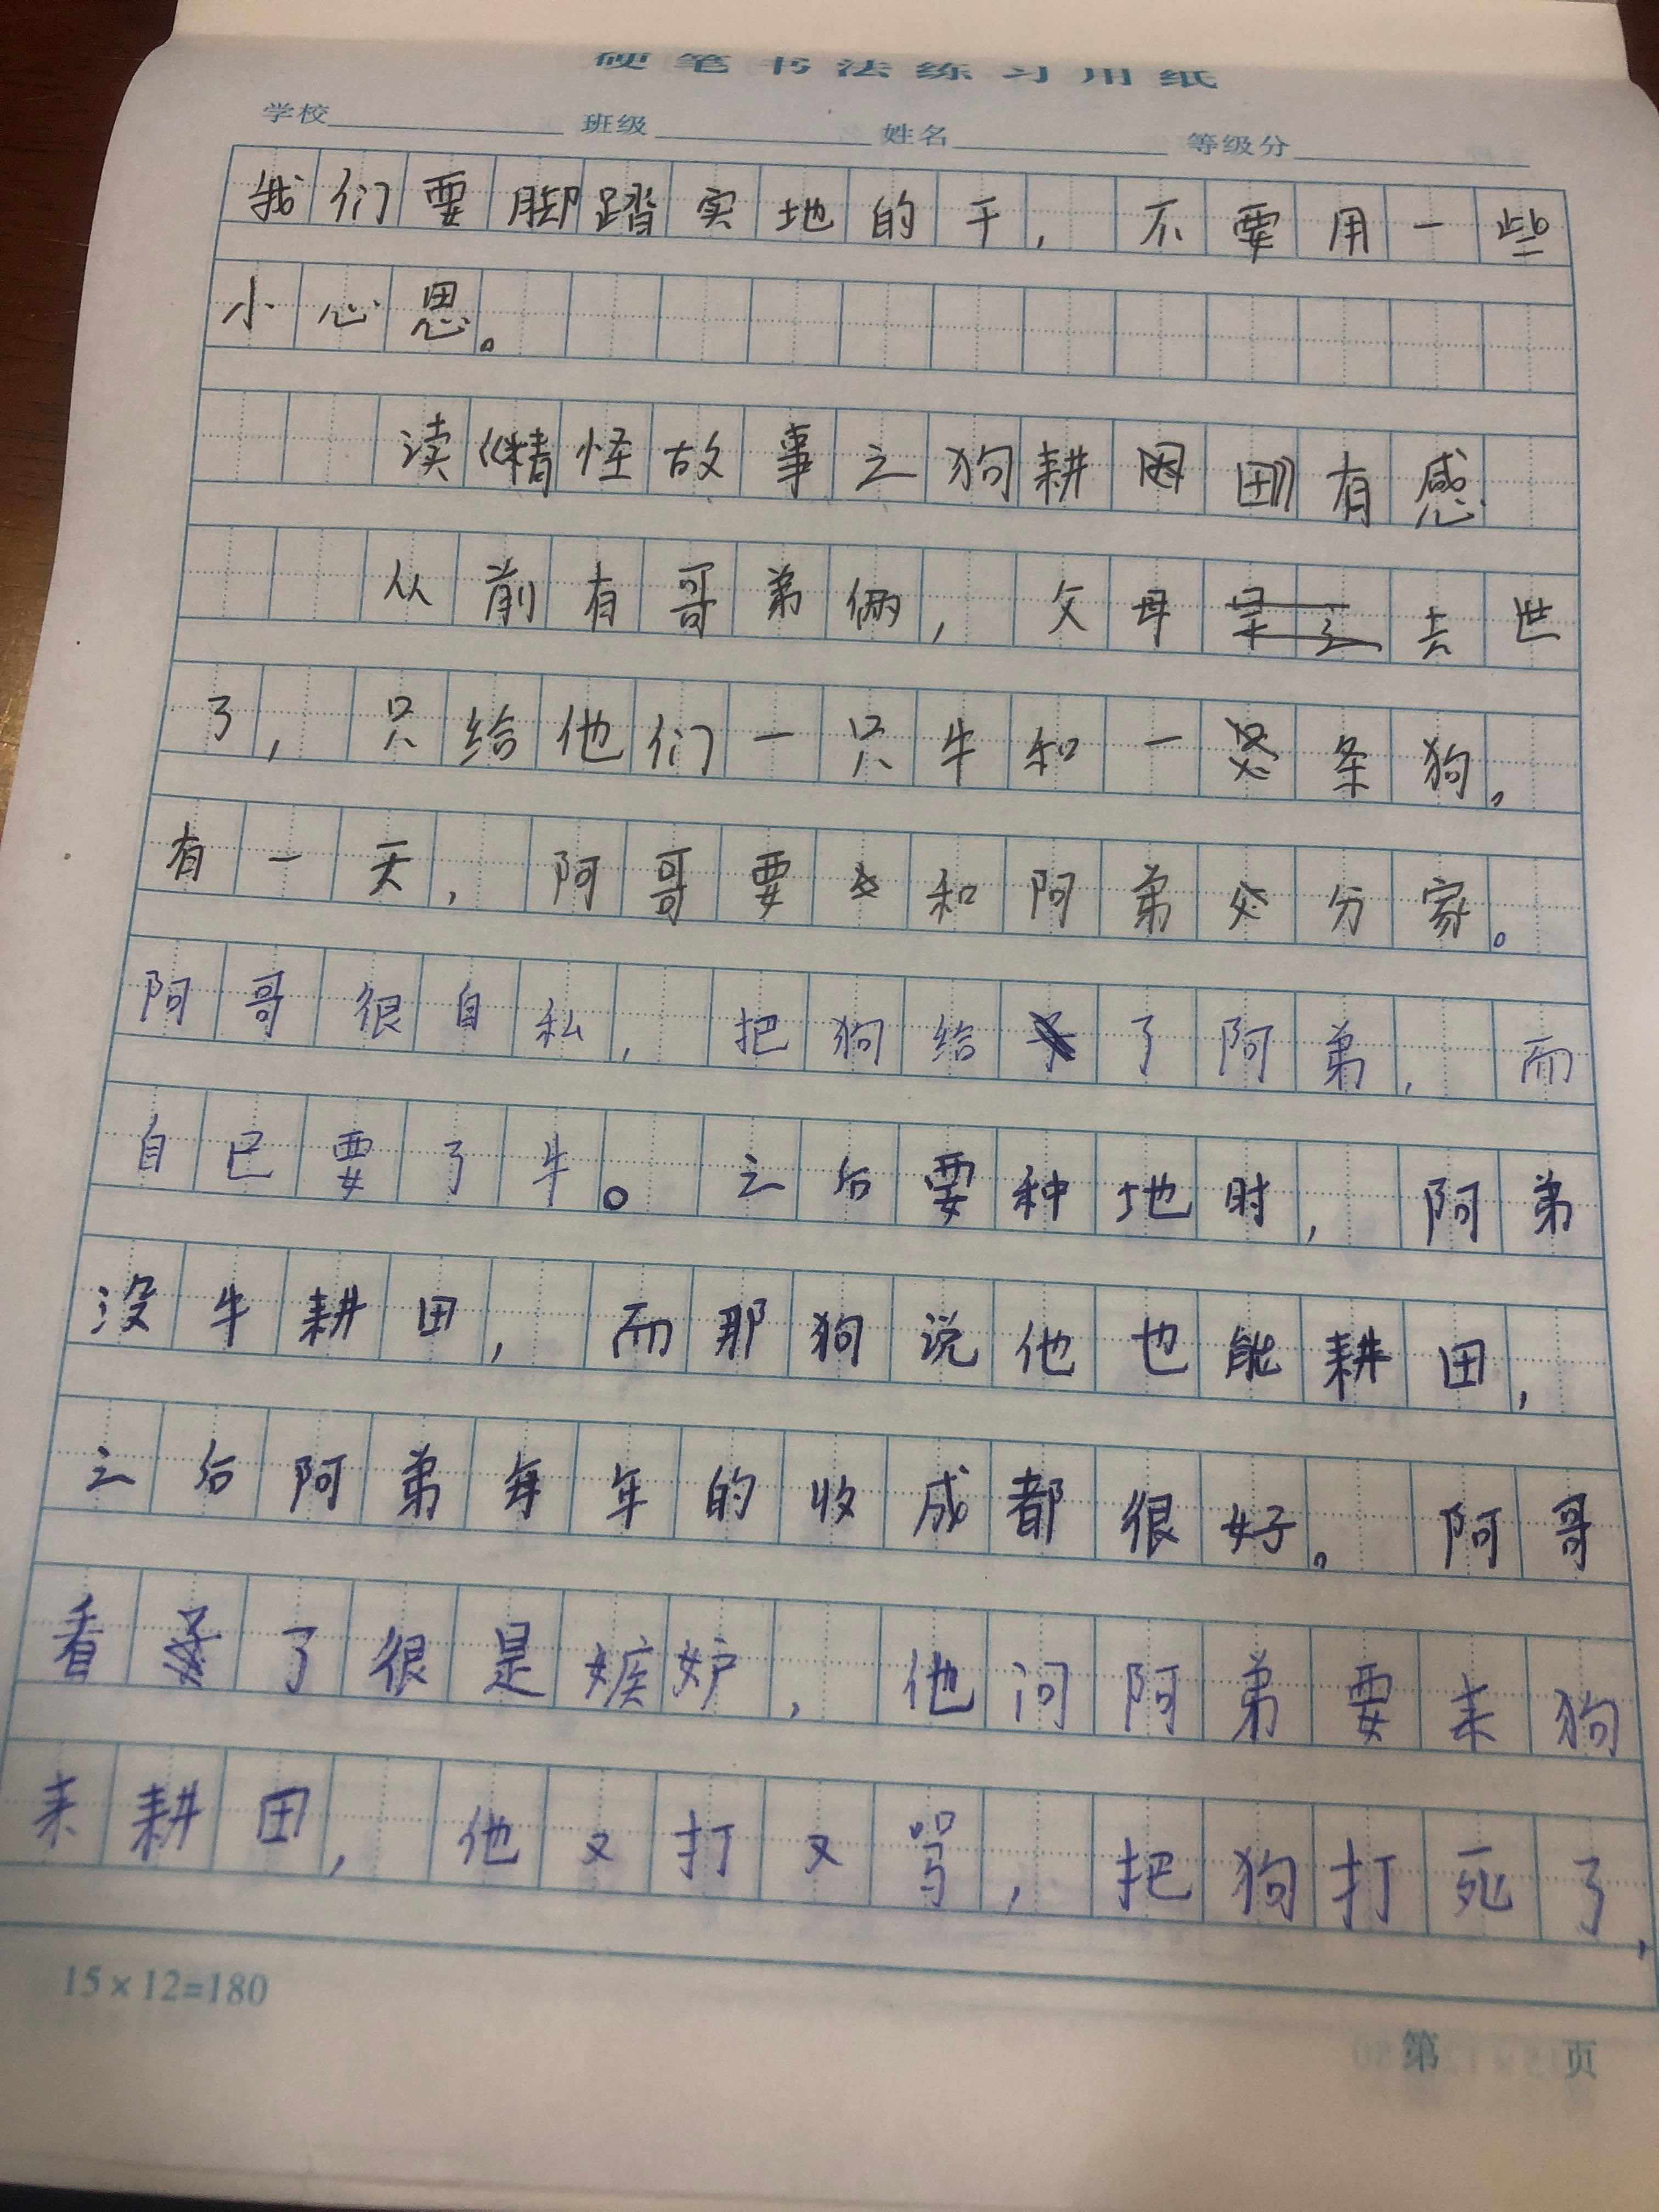 硬笔书法练习用纸
学校 班级 姓名 等级分
我们要脚踏实地的干，不要用一些
小心思。
读《精怪故事之狗耕田》有感
从前有哥弟俩，父母去世
了，只给他们一只牛和一条狗。
有一天，阿哥要和阿弟分家。
阿哥很自私，把狗给了阿弟，而
自已要了牛。之后要种地时，阿弟
没牛耕田，而那狗说他也能耕田，
之后阿弟每年的收成都很好。阿哥
看了很是嫉妒，他问阿弟要来狗
来耕田，他又打又骂，把狗打死了，
15×12=180
第 页